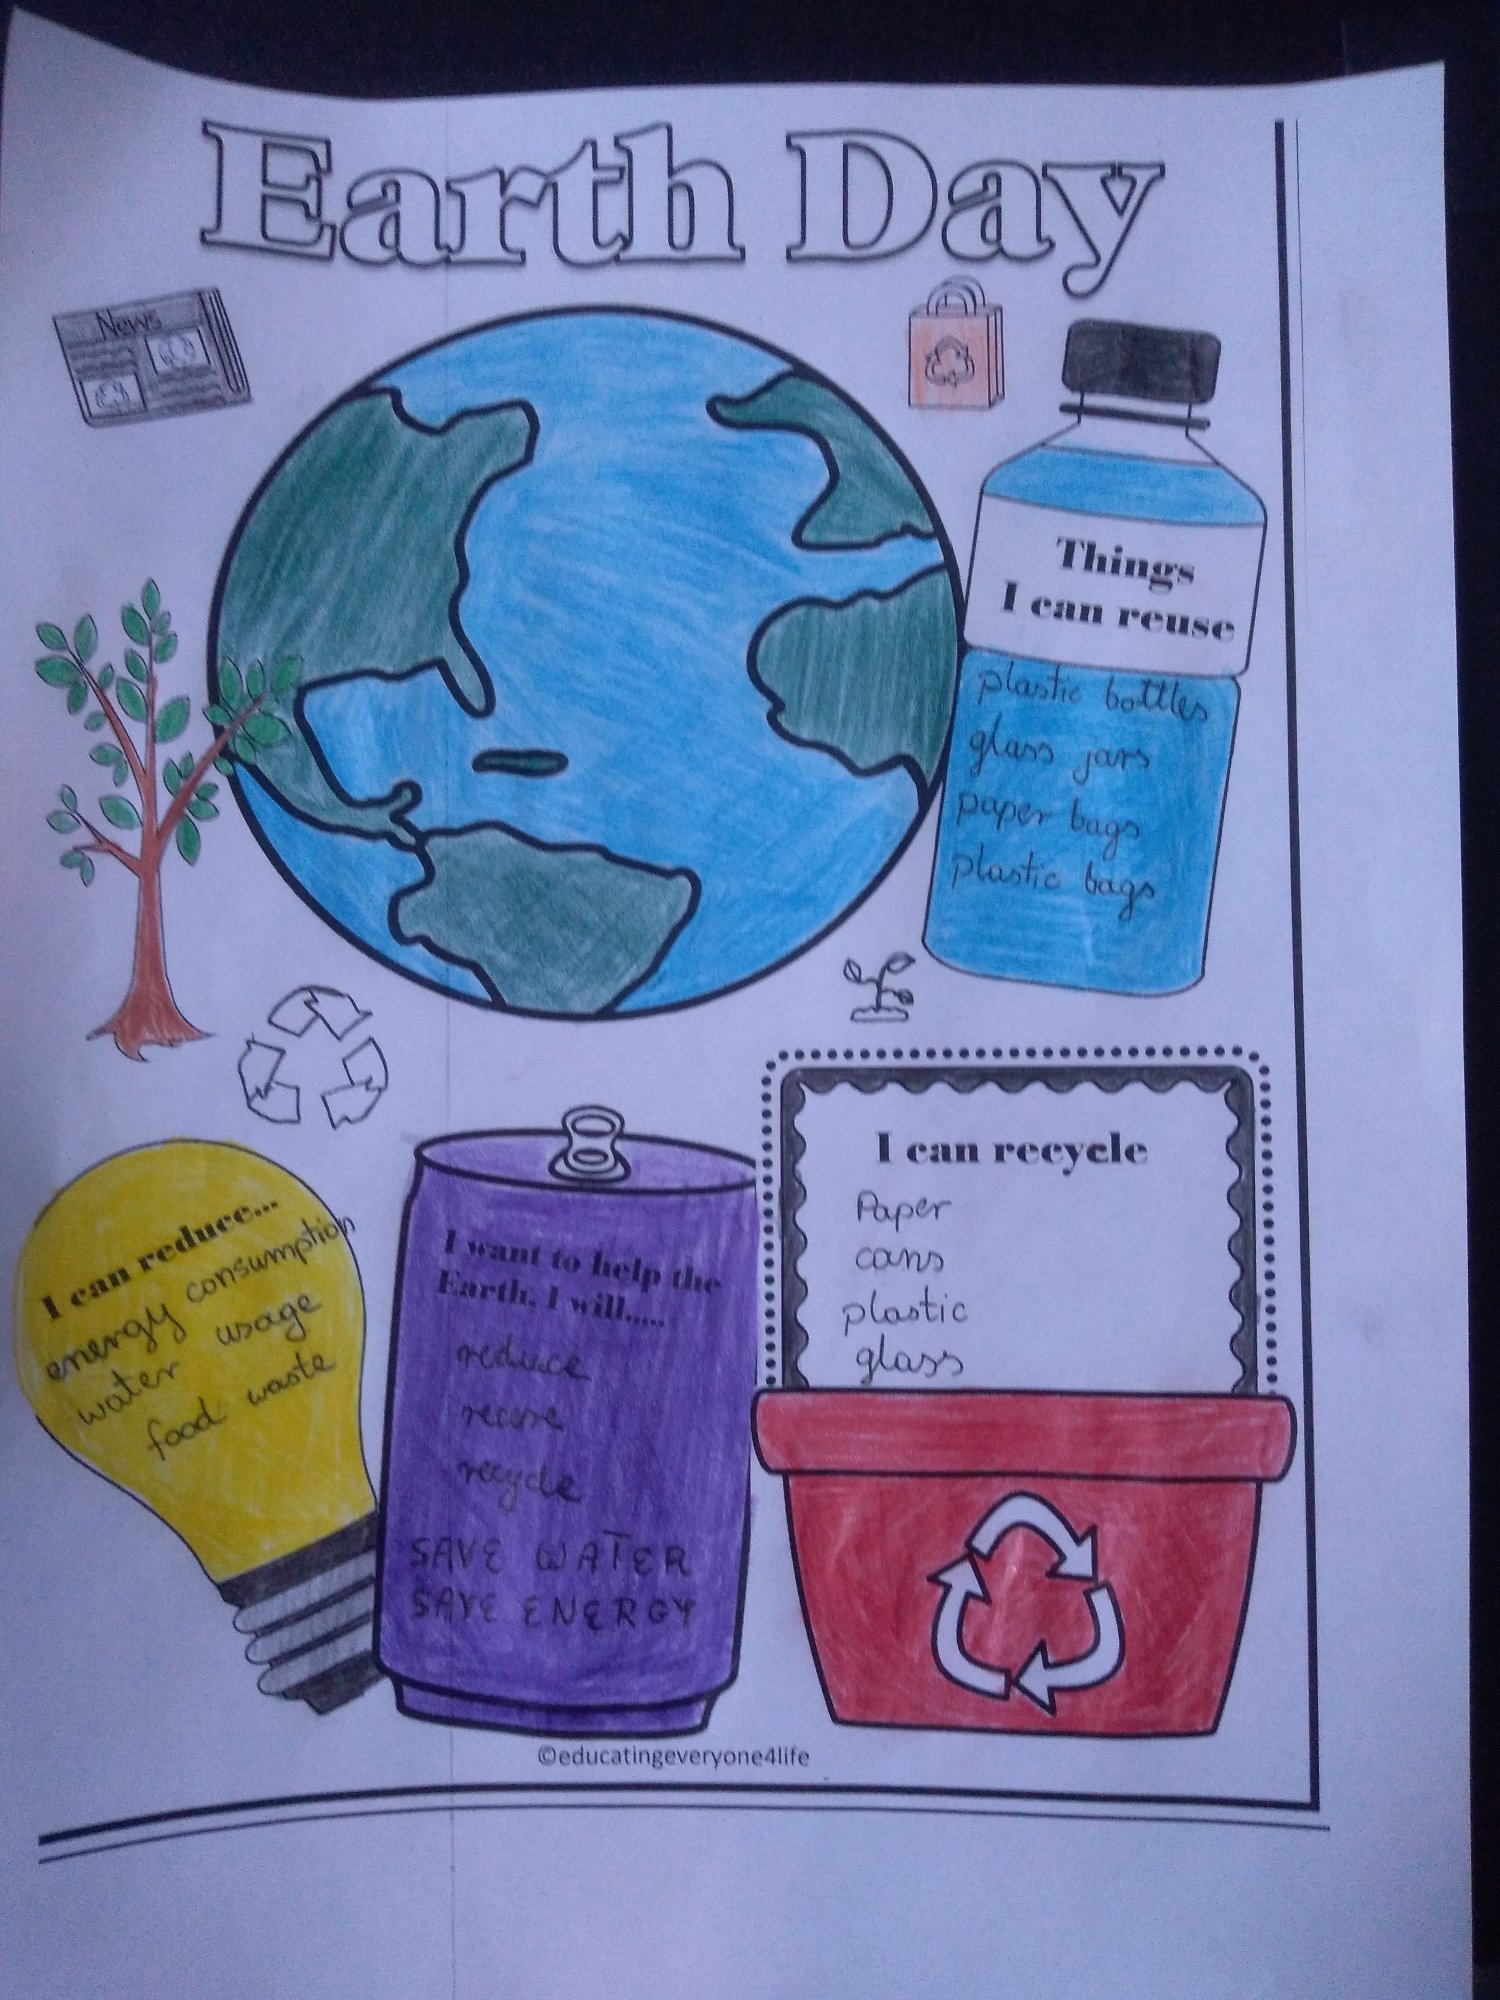 Earth Day
News
Things
I can reuse
plastic bottles
glass jars
paper bags
plastic bags
I can reduce...
energy consumption
water usage
food waste
I want to help the
Earth, I will.....
reduce
reuse
recycle
SAVE WATER
SAVE ENERGY
I can recycle
Paper
cans
plastic
glass
©educatingeveryone4life